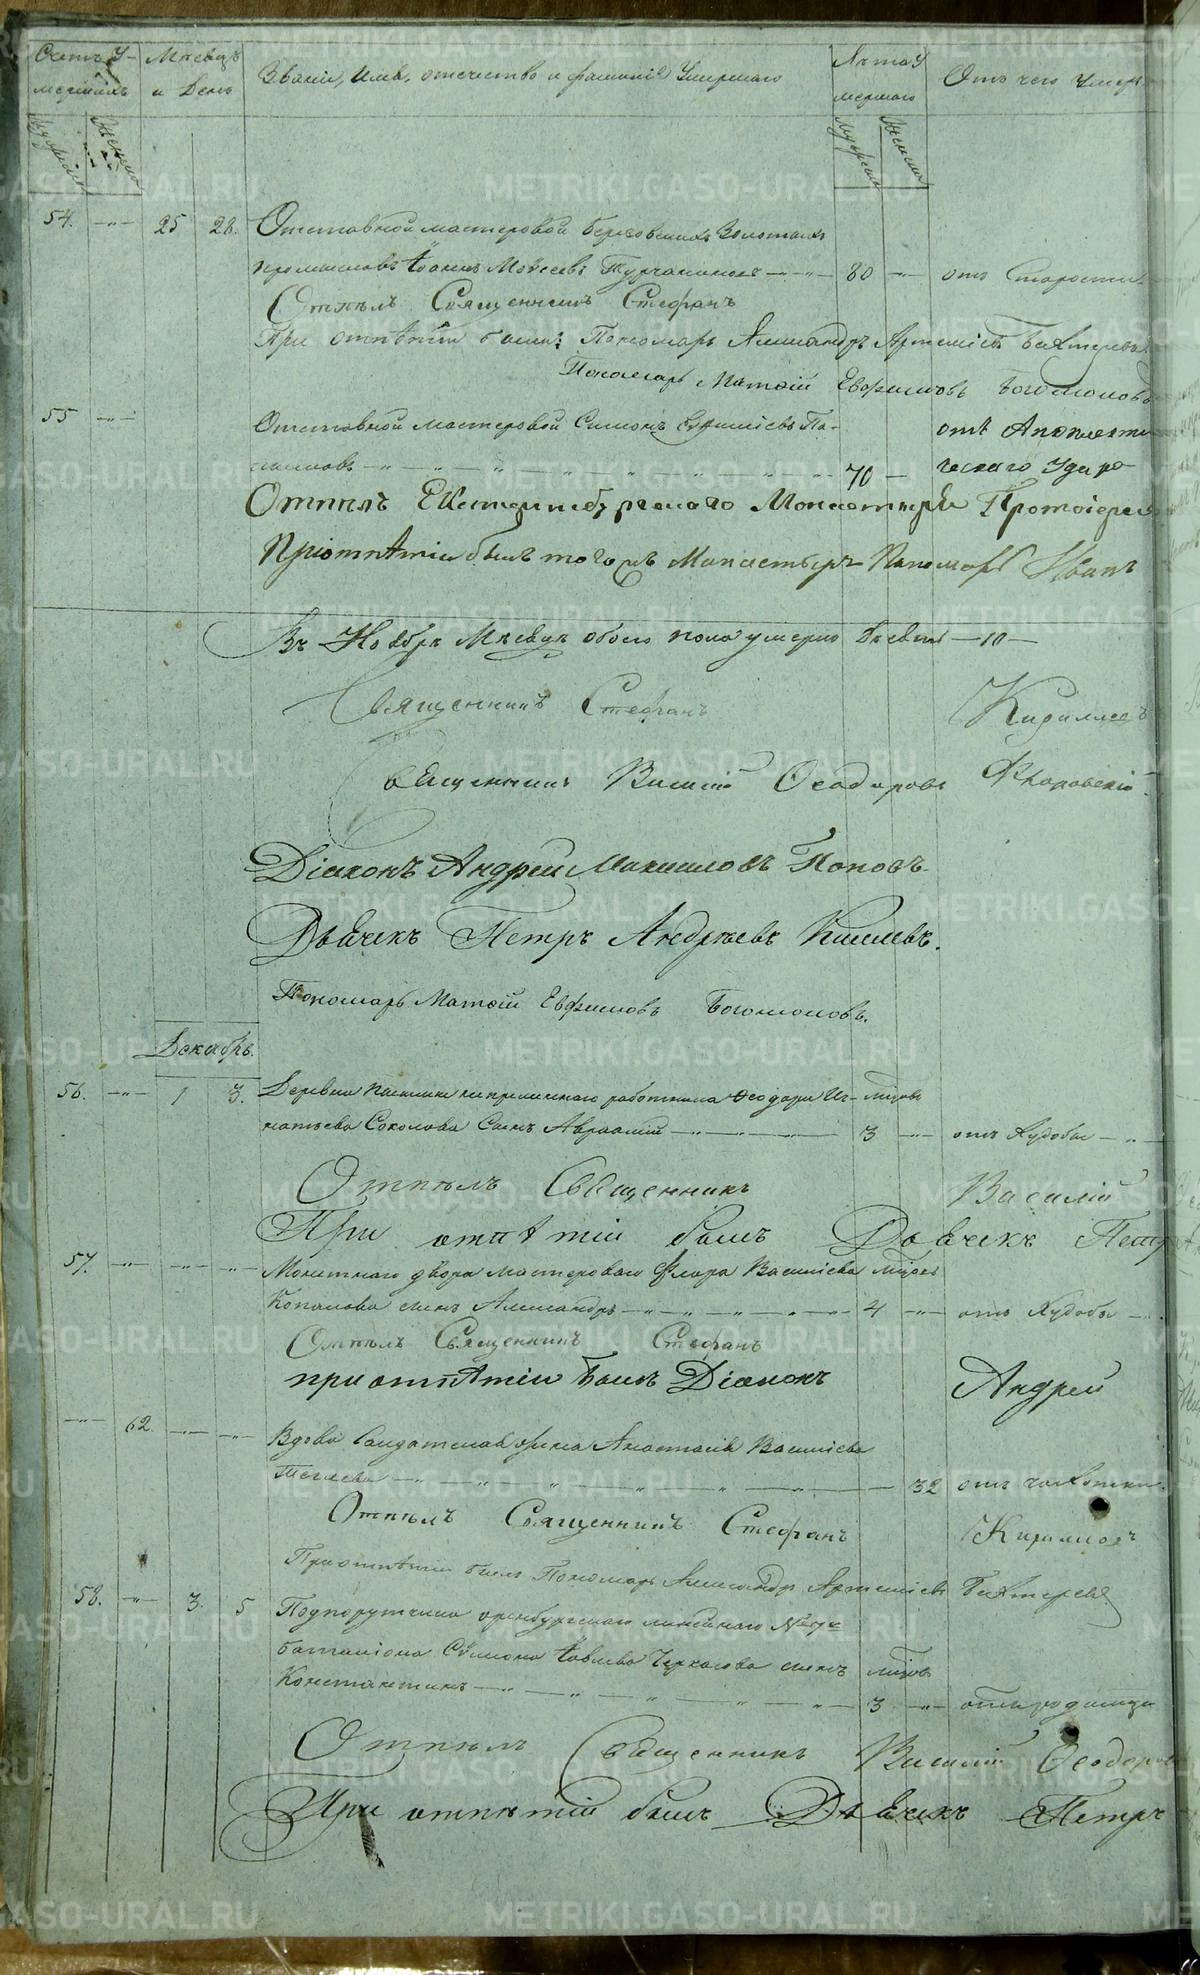 Счетъ У- Мѣсяцъ Званіе, имя, отчество и фамилія Умершаго Лѣта У Отъ чего умеръ
мершихъ и День мершаго
Мужеска Женска Мужеска Женска
54. — 25 28. Отставной мастеровой Березовскихъ Золотыхъ
промысловъ Іоаннъ Моѵсеевъ Турчаниновъ — 80 — отъ Старости
Отпѣлъ Священникъ Стефанъ
При отпѣтіи были: Пономарь Александръ Артеміевъ Бахтеревъ
Пономарь Матѳій Евфимовъ Богомоловъ
55 — Отставной мастеровой Симонъ Па- отъ Апоплекти
— 70 — ческаго Удара
Отпѣлъ Екатеринбургскаго Монастыря Протоіерей
При отпѣтіи былъ того жъ Монастыря Пономарь Иванъ
Въ Ноябрѣ Мѣсяцѣ обоего пола умерло — 10 —
Священникъ Стефанъ Кирилловъ
Священникъ Василій Ѳеодоровъ
Діаконъ Андрей Максимовъ Поповъ.
Дьячекъ Петръ Андрѣевъ Киселевъ.
Пономарь Матѳій Евфимовъ Богомоловъ.
Декабрь.
56. — 1 3. Деревни работника Ѳеодора Иг- мѣсяцъ
натьева Соколова Сынъ Авраамій — 3 — отъ Худобы —
Отпѣлъ Священникъ Василій
При отпѣтіи былъ Дьячекъ Петръ
57. — — — Монетнаго двора мастероваго Флора Васильева мѣсяц
Копалова сынъ Александръ — 4 — отъ Худобы —
Отпѣлъ Священникъ Стефанъ
при отпѣтіи былъ Діаконъ Андрей
— 62. — — Вдова Солдатская жена Анастасія Васильева
— 32 отъ чахотки.
Отпѣлъ Священникъ Стефанъ Кирилловъ
При отпѣтіи былъ Пономарь Александръ Артеміевъ Бахтеревъ
58. — 3. 5 Подпоручика оренбургскаго линейнаго № 7го
баталіона Симона Іовлева Черкасова сынъ мѣсяцъ
Константинъ — 3 — отъ родимца
Отпѣлъ Священникъ Василій Ѳеодоровъ
При отпѣтіи былъ Дьячекъ Петръ